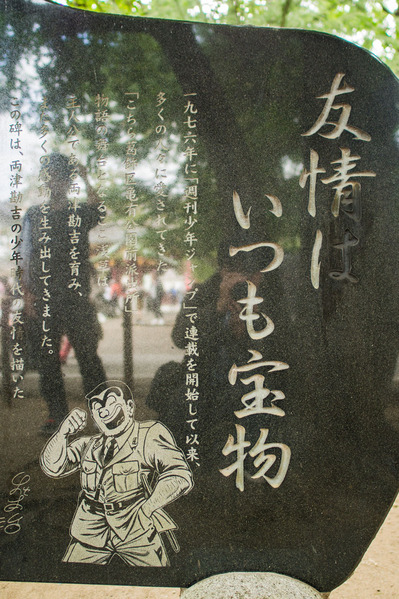 友情は
いつも宝物
一九七六年に「週刊少年ジャンプ」で連載を開始して以来、
多くの人々に愛されてきた
「こちら葛飾区亀有公園前派出所」
物語の舞台となるここ浅草は、
主人公である両津勘吉を育み、
多くの感動を生み出してきました。
この碑は、両津勘吉の少年時代の友情を描いた